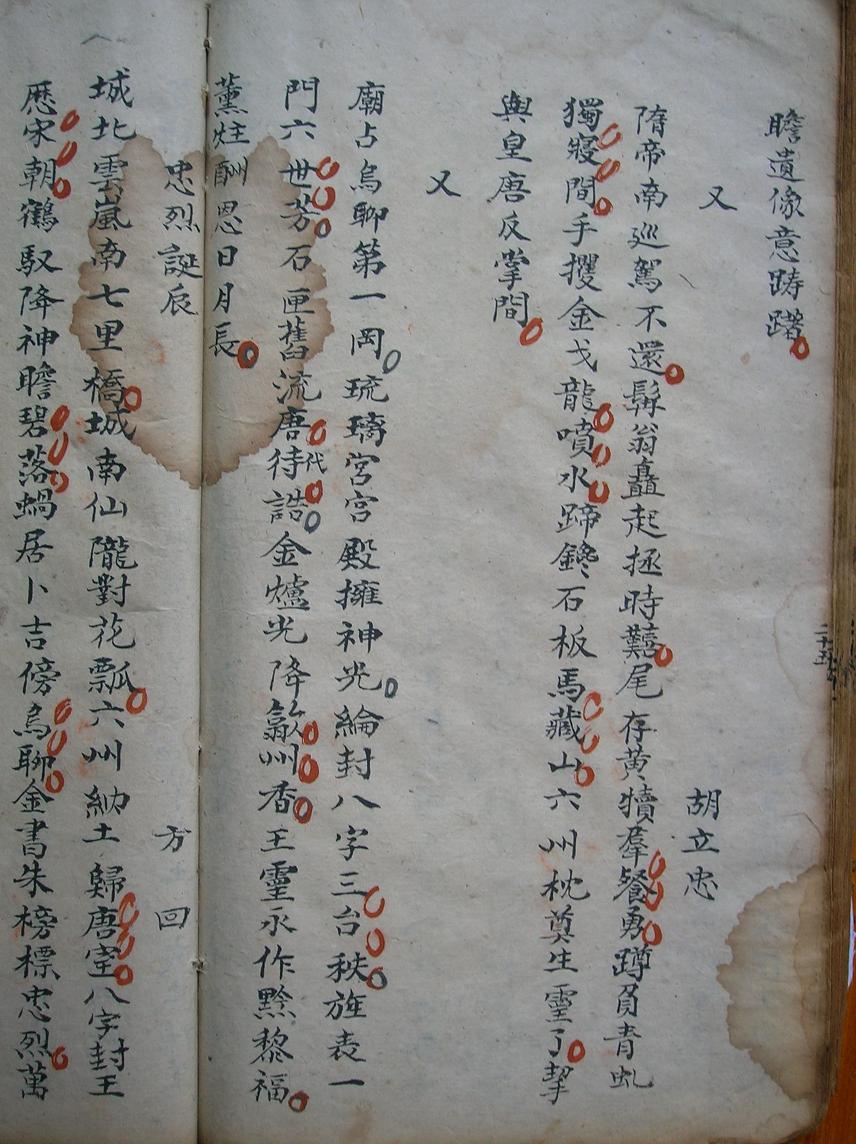 瞻遺像意躊躇
又
胡立忠
隋帝南巡駕不還髯翁矗起拯時囏尾存黃犢羣餐勇蹲負青虬
獨寢間手攫金戈龍噴水蹄鑱石板馬藏山六州枕奠生靈了挈
與皇唐反掌間
又
廟占烏聊第一岡琉璃宮宮殿擁神光綸封八字三台秩旌表一
門六世芳石匣舊流唐待代誥金爐光降歙州香王靈永作黔黎福
薰炷酬恩日月長
忠烈誕辰
方回
城北雲嵐南七里橋城南仙隴對花瓢六州納土歸唐室八字封王
歷宋朝鶴馭降神瞻碧落蝸居卜吉傍烏聊金書朱榜標忠烈萬
二十五